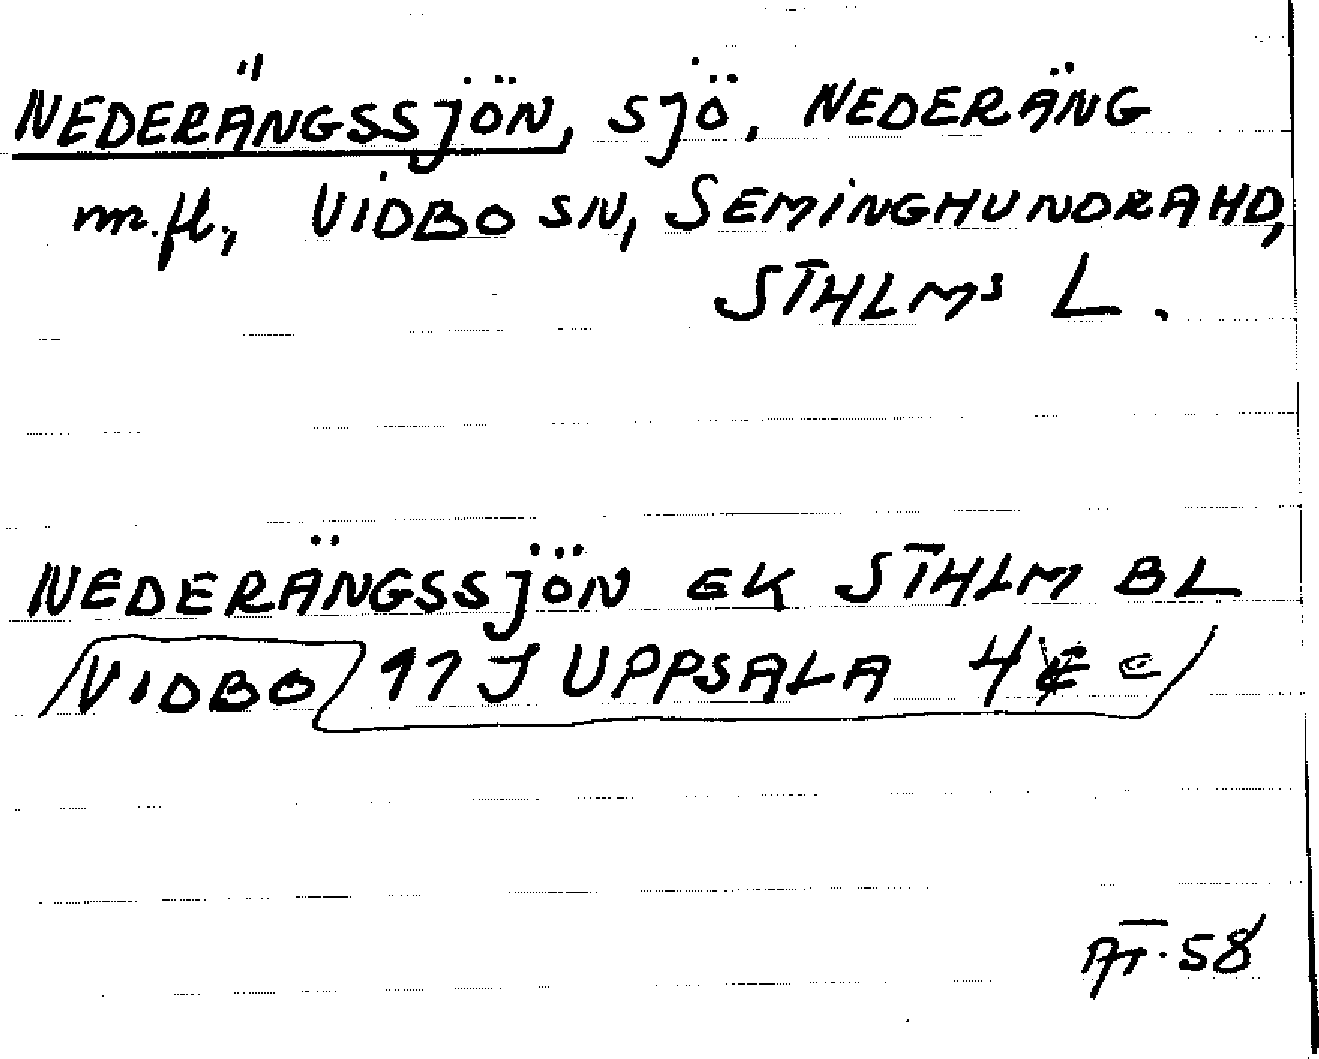 NEDERÄNGSSJÖN, SJÖ, NEDERÄNG
m.fl., VIDBO SN, SEMINGHUNDRA HD,
STHLMS L.
NEDERÄNGSSJÖN EK STHLM BL
VIDBO 11 J UPPSALA 4 e
AT. 58